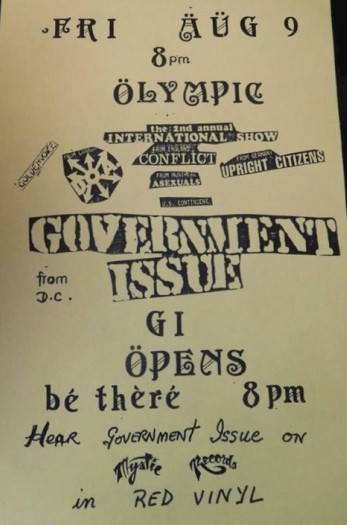 FRI AÜG 9
8pm
ÖLYMPIC
the 2nd annual
INTERNATIONAL SHOW
FROM ENGLAND
CONFLICT
FROM GERMANY
UPRIGHT CITIZENS
D.O.A.
FROM MONTREAL
ASEXUALS
U.S. CONTINGENT
GOVERNMENT
ISSUE
from
D.C.
GI
ÖPENS
bé thèré 8pm
HEAR GOVERNMENT ISSUE ON
Mystic Records
in RED VINYL